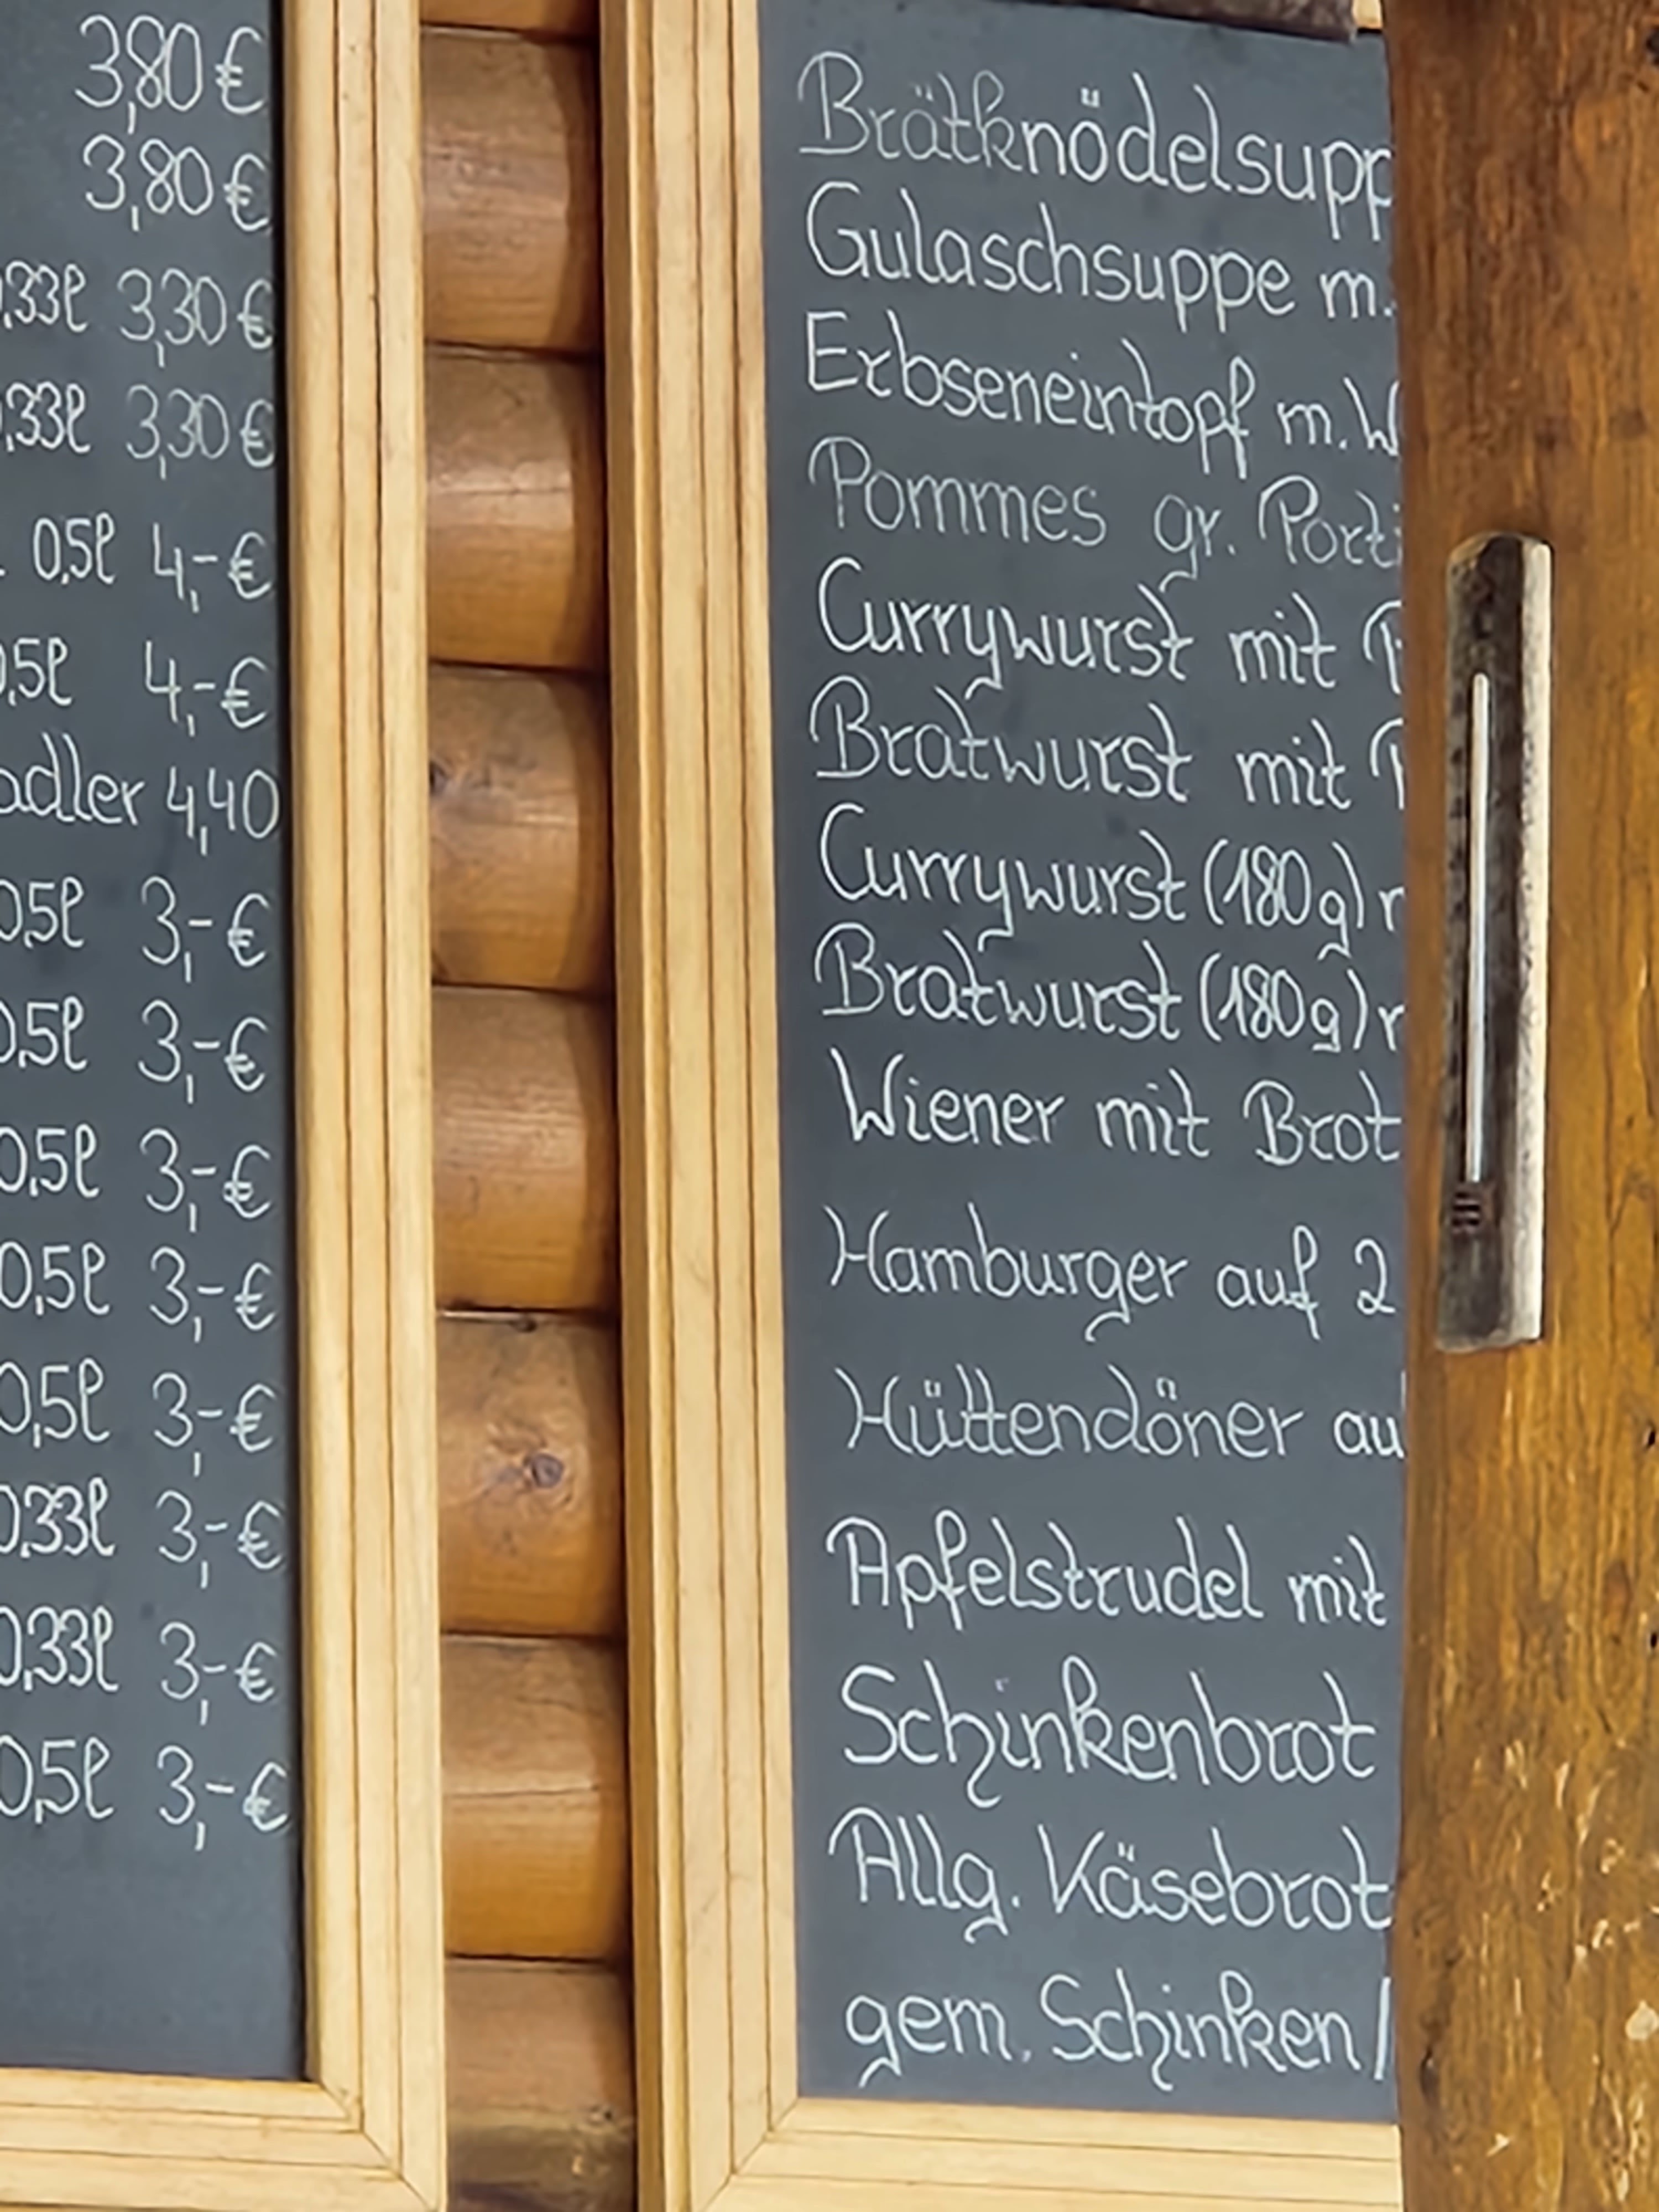 3,80 €
3,80 €
0,33l 3,30 €
,33l 3,30 €
0,5l 4,- €
0,5l 4,- €
adler 4,40
0,5l 3,- €
0,5l 3,- €
0,5l 3,- €
0,5l 3,- €
0,5l 3,- €
0,33l 3,- €
0,33l 3,- €
0,5l 3,- €
Brätknödelsupp
Gulaschsuppe m.
Erbseneintopf m. W
Pommes gr. Porti
Currywurst mit P
Bratwurst mit P
Currywurst (180g)
Bratwurst (180g)
Wiener mit Brot
Hamburger auf 2
Hüttendöner au
Apfelstrudel mit
Schinkenbrot
Allg. Käsebrot
gem. Schinken/